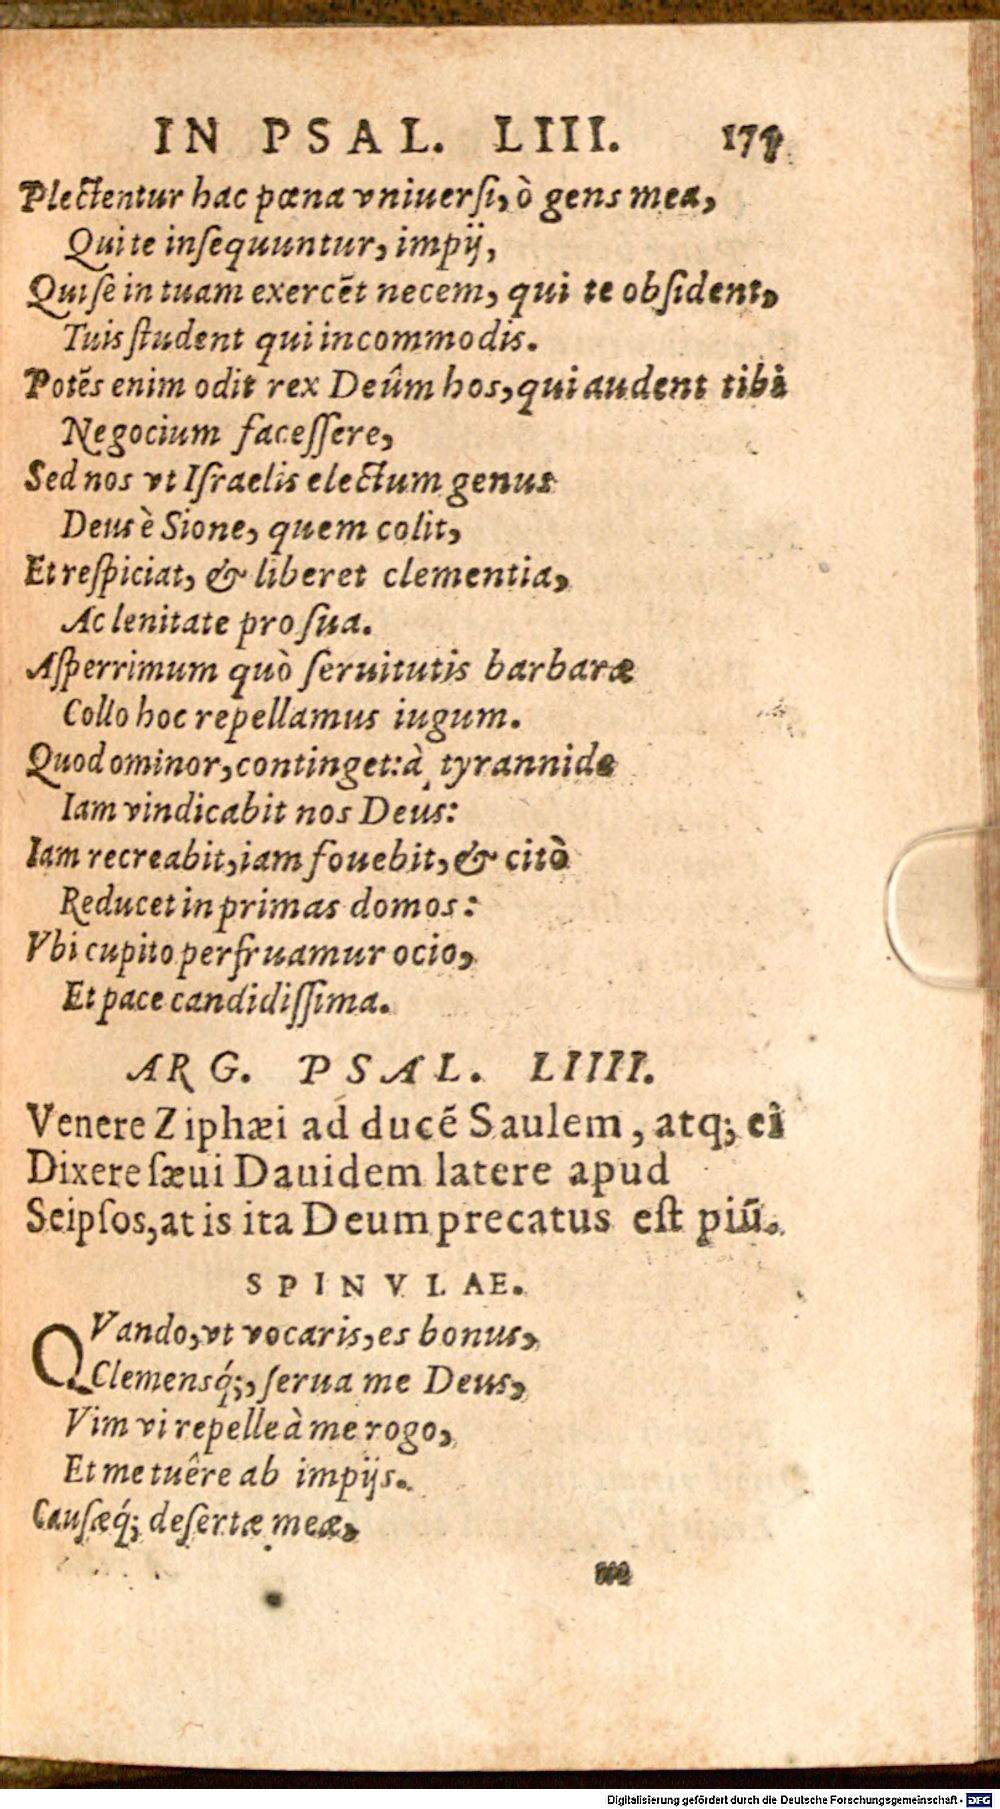 IN PSAL. LIII.
Plectentur hac pœna vniuersi, ò gens mea,
Qui te insequuntur, impij,
Qui se in tuam exercēt necem, qui te obsident,
Tuis student qui incommodis.
Potēs enim odit rex Deûm hos, qui audent tibi
Negocium facessere,
Sed nos vt Israelis electum genus
Deus è Sione, quem colit,
Et respiciat, & liberet clementia,
Ac lenitate pro sua.
Asperrimum quò seruitutis barbaræ
Collo hoc repellamus iugum.
Quod ominor, continget: à tyrannide
Iam vindicabit nos Deus:
Iam recreabit, iam fouebit, & citò
Reducet in primas domos:
Vbi cupito perfruamur ocio,
Et pace candidissima.
ARG. PSAL. LIIII.
Venere Ziphæi ad ducē Saulem, atq; ei
Dixere sæui Dauidem latere apud
Seipsos, at is ita Deum precatus est piū.
SPINVLAE.
QVando, vt vocaris, es bonus,
Clemensq́;, serua me Deus,
Vim vi repelle à me rogo,
Et me tuêre ab impijs.
Causæq́; desertæ meæ,
Digitalisierung gefördert durch die Deutsche Forschungsgemeinschaft - DFG